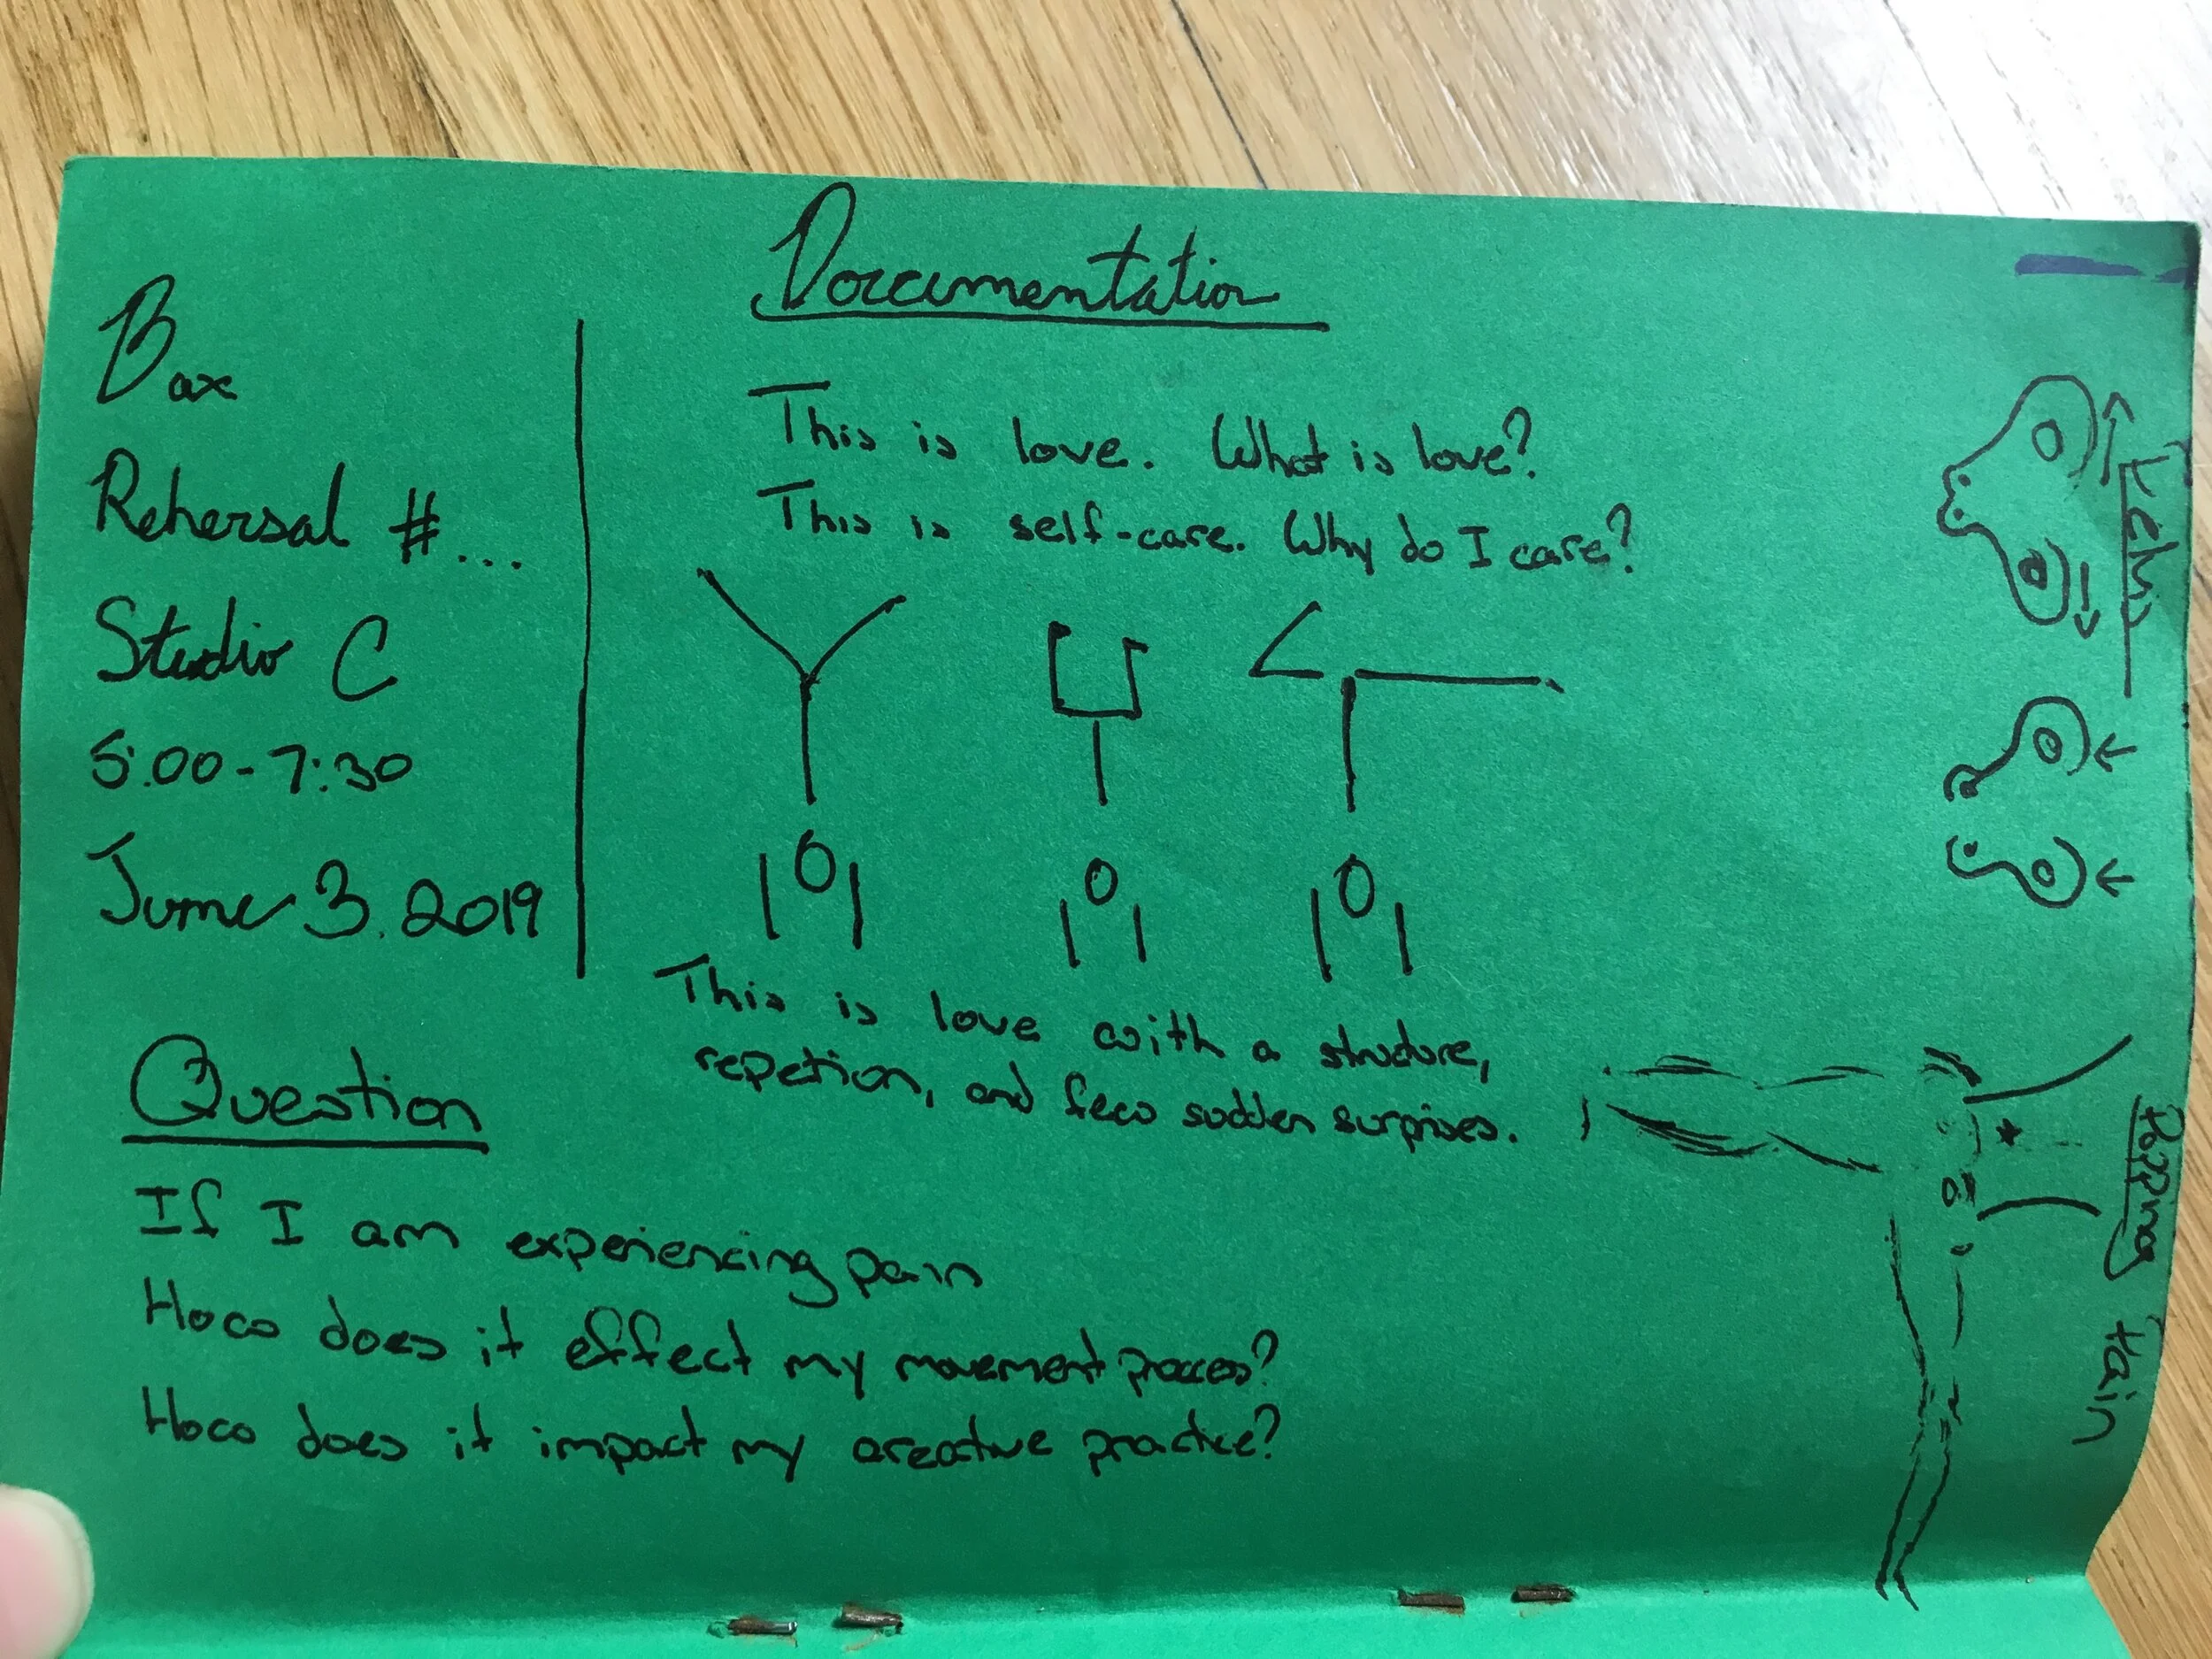 Bax
Rehersal #....
Studio C
5:00-7:30
June 3. 2019
Documentation
This is love. What is love?
This is self-care. Why do I care?
This is love with a structure,
repetion, and few sudden surprises.
Question
If I am experiencing pain
How does it effect my movement process?
How does it impact my creative practice?
Popping